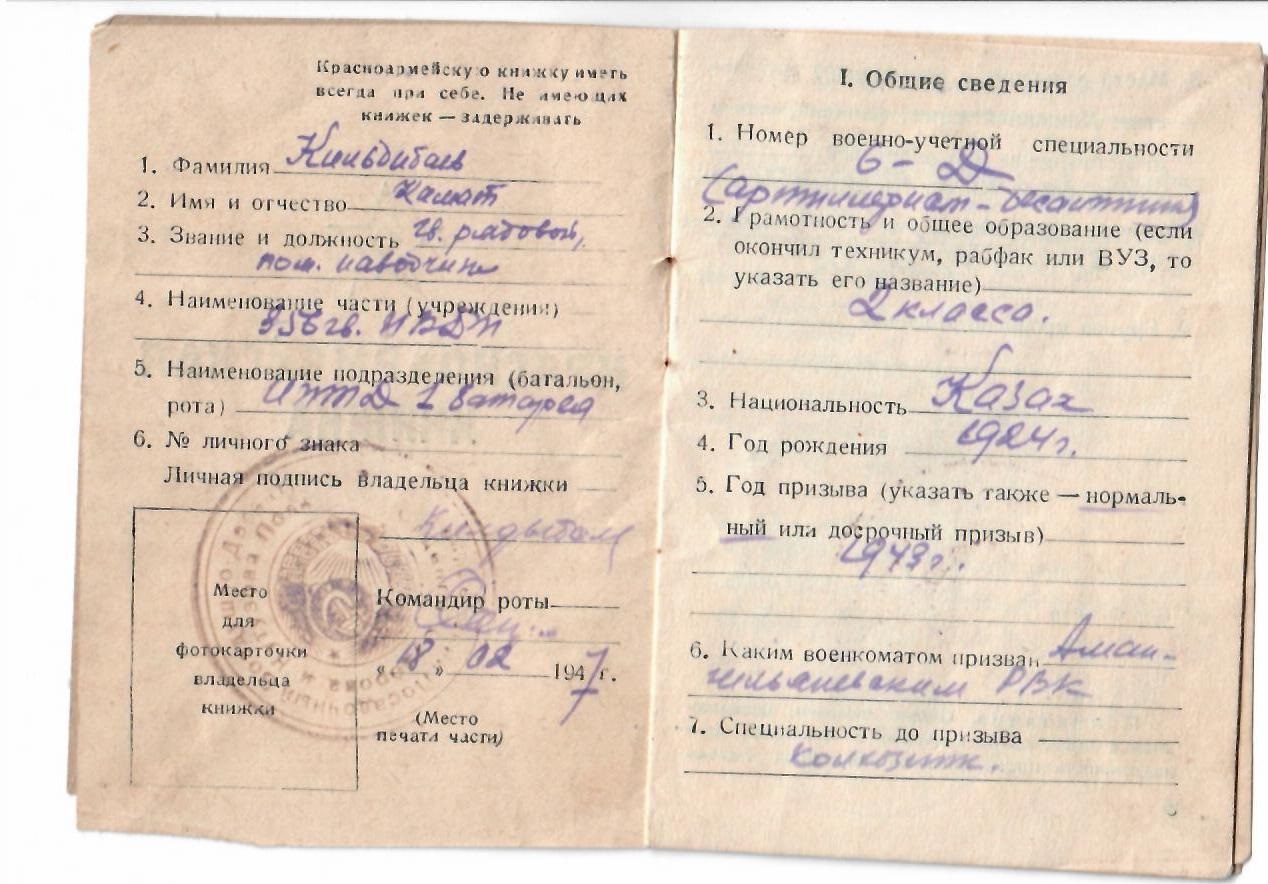 Красноармейскую книжку иметь
всегда при себе. Не имеющих
книжек — задерживать
1. Фамилия Кильдибаев
2. Имя и отчество Хамат
3. Звание и должность гв. рядовой,
пом. наводчик
4. Наименование части (учреждения)
356 гв.
5. Наименование подразделения (батальон,
рота) 1 батарея
6. № личного знака
Личная подпись владельца книжки
Командир роты
Место
для
фотокарточки
владельца
книжки
«18» 02 1947 г.
(Место
печати части)
I. Общие сведения
1. Номер военно-учетной специальности
6 - Д
(артиллерист-десантник)
2. Грамотность и общее образование (если
окончил техникум, рабфак или ВУЗ, то
указать его название)
2 класса.
3. Национальность Казах
4. Год рождения 1924 г.
5. Год призыва (указать также — нормаль-
ный или досрочный призыв)
1943 г.
6. Каким военкоматом призван Аман-
гельдиевским РВК
7. Специальность до призыва
колхозник.